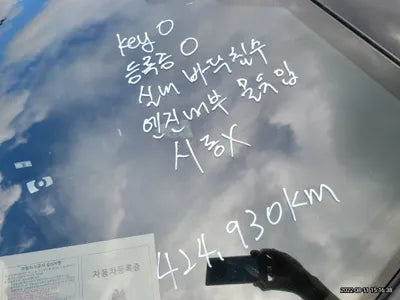 key O
등록증 O
실내 바닥침수
엔진내부 물유입
시동X
424,930km
자동차등록증
2022-08-11 15:16:38